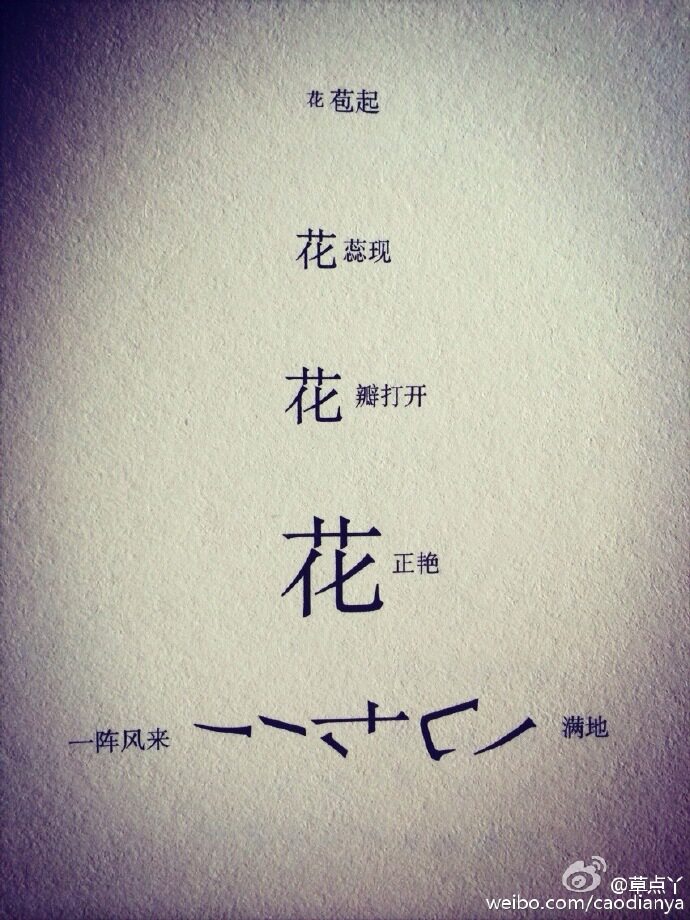 花苞起
花蕊现
花瓣打开
花正艳
一阵风来 满地
@草点丫
weibo.com/caodianya